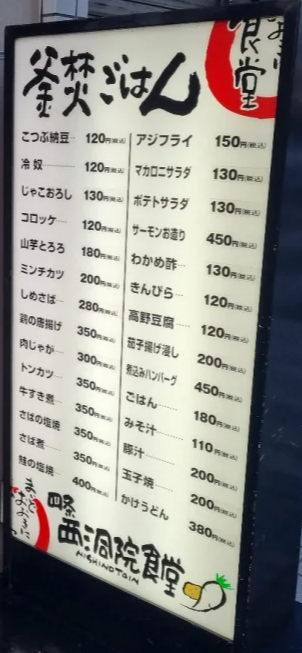 食堂
釜焚ごはん
こつぶ納豆 120円(税込)
冷奴 120円(税込)
じゃこおろし 130円(税込)
コロッケ 120円(税込)
山芋とろろ 180円(税込)
ミンチカツ 200円(税込)
しめさば 280円(税込)
鶏の唐揚げ 350円(税込)
肉じゃが 300円(税込)
トンカツ 350円(税込)
牛すき煮 350円(税込)
さばの塩焼 350円(税込)
さば煮 350円(税込)
鮭の塩焼 400円(税込)
アジフライ 150円(税込)
マカロニサラダ 130円(税込)
ポテトサラダ 130円(税込)
サーモンお造り 450円(税込)
わかめ酢 130円(税込)
きんぴら 120円(税込)
高野豆腐 120円(税込)
茄子揚げ浸し 200円(税込)
煮込みハンバーグ 450円(税込)
ごはん 180円(税込)
みそ汁 110円(税込)
豚汁 200円(税込)
玉子焼 200円(税込)
かけうどん 380円(税込)
四条
西洞院食堂
NISHINOTOIN